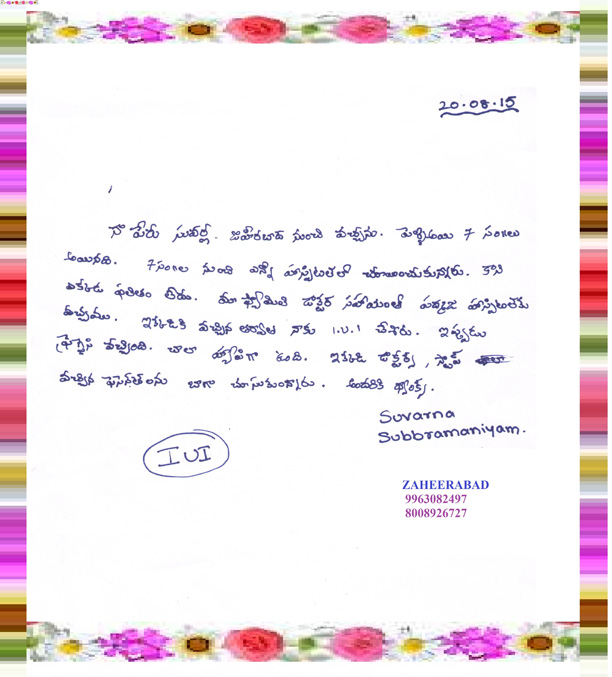 20.08.15
నా పేరు సువర్ణ. జహీరబాద నుంచి వచ్చాను. పెళ్ళిఅయి 7 సం॥లు
అయినది. 7సం॥ల నుంచి ఎన్నో హాస్పిటల్‌లో చూయించుకున్నారు. కాని
ఎక్కడ ఫలితం లేదు. మా ఫ్యామిలి డాక్టర్ సహాయంతో పద్మజ హాస్పిటల్‌కు
వచ్చాము. ఇక్కడికి వచ్చిన తర్వాత నాకు I.U.I చేశారు. ఇప్పుడు
ప్రెగ్నెన్సి వచ్చింది. చాలా హ్యాపిగా ఉంది. ఇక్కడి డాక్టర్స్, స్టాఫ్
వచ్చిన పేసెన్ట్‌లను బాగా చూసుకుంటారు. అందరికి థ్యాంక్స్.
Suvarna
Subbramaniyam.
IUI
ZAHEERABAD
9963082497
8008926727